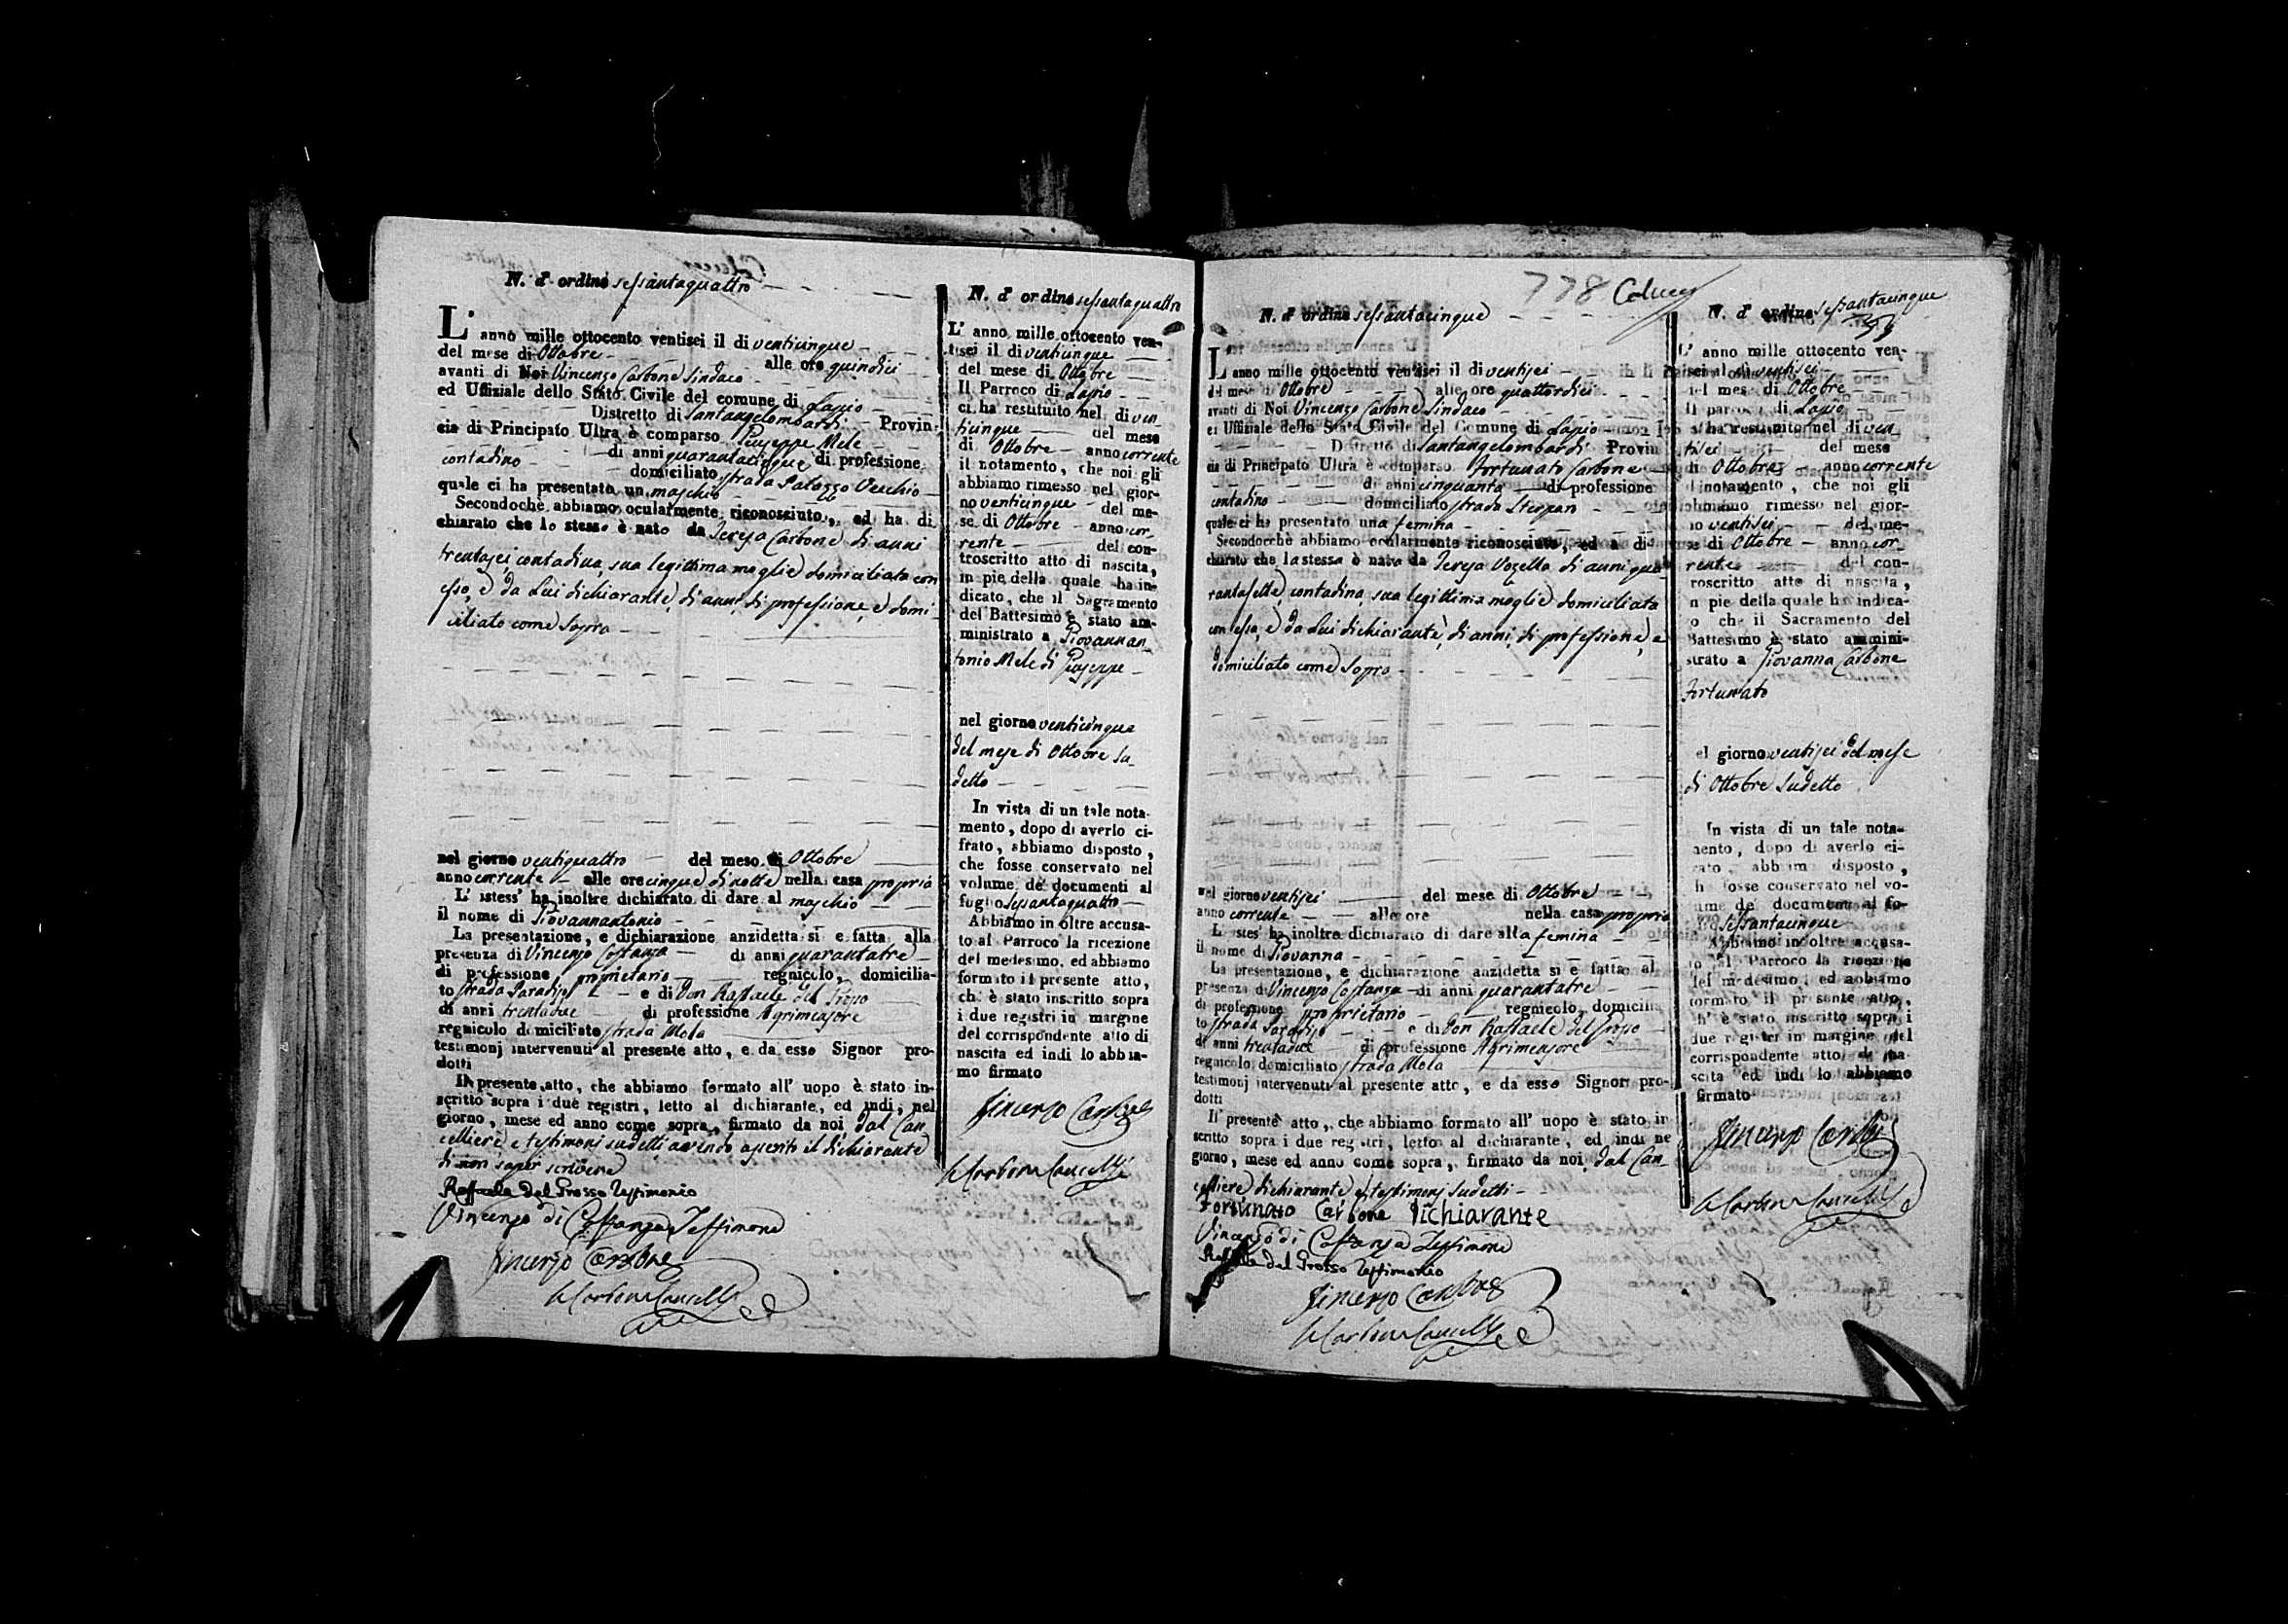 N. d' ordine sessantaquattro
L' anno mille ottocento ventisei il di venticinque
del mese di Ottobre alle ore quindici
avanti di Noi Vincenzo Carbone Sindaco
ed Uffiziale dello Stato Civile del comune di Lapio
Distretto di Santangelombardi Provin-
cia di Principato Ultra è comparso Giuseppe Mele
di anni quarantacinque di professione
contadino domiciliato strada Palazzo Vecchio
quale ci ha presentato un maschio
Secondochè abbiamo ocularmente riconosciuto, ed ha di
chiarato che lo stesso è nato da Teresa Carbone di anni
trentasei, contadina, sua legittima moglie domiciliata con
esso, e da Lui dichiarante, di anni, di professione, e domi-
ciliato come sopra
nel giorno ventiquattro del mese di Ottobre
anno corrente alle ore cinque di notte nella casa propria
L' istess' ha inoltre dichiarato di dare al maschio
il nome di Giovannantonio
La presentazione, e dichiarazione anzidetta si e fatta alla
presenza di Vincenzo Costanza di anni quarantatre
di professione proprietario regnicolo, domicilia-
to strada Paradiso e di Don Raffaele del Grosso
di anni trentadue di professione Agrimensore
regnicolo domiciliato strada Mola
testimonj intervenuti al presente atto, e da esso Signor pro-
dotti
Il presente atto, che abbiamo formato all' uopo è stato in-
scritto sopra i due registri, letto al dichiarante, ed indi, nel
giorno, mese ed anno come sopra, firmato da noi, dal Can-
celliere, e testimonj sudetti avendo asserito il dichiarante
di non saper scrivere
Raffaele del Grosso Testimonio
Vincenzo di Costanza Testimone
Vincenzo Carbone
N. d' ordine sessantaquattro
L' anno mille ottocento ven-
tisei il di venticinque
del mese di Ottobre
Il Parroco di Lapio
ci ha restituito nel di ven
ticinque del mese
di Ottobre anno corrente
il notamento, che noi gli
abbiamo rimesso nel gior-
no venticinque del me-
se di Ottobre anno cor-
rente del con-
troscritto atto di nascita,
in pie della quale ha in-
dicato, che il Sagramento
del Battesimo è stato am-
ministrato a Giovannan-
tonio Mele di Giuseppe
nel giorno venticinque
del mese di Ottobre su-
detto
In vista di un tale nota-
mento, dopo di averlo ci-
frato, abbiamo disposto,
che fosse conservato nel
volume de' documenti al
foglio sessantaquattro
Abbiamo in oltre accusa-
to al Parroco la ricezione
del medesimo, ed abbiamo
formato il presente atto,
ch' è stato inscritto sopra
i due registri in margine
del corrispondente atto di
nascita ed indi lo abbia-
mo firmato
Vincenzo Carbone
778 Colucci
N. d' ordine sessantacinque
L' anno mille ottocento ventisei il di ventisei
del mese di Ottobre alle ore quattordici
avanti di Noi Vincenzo Carbone Sindaco
ed Uffiziale dello Stato Civile del Comune di Lapio
Distretto di Santangelombardi Provin
cia di Principato Ultra è comparso Fortunato Carbone
di anni cinquanta di professione
contadino domiciliato strada
quale ci ha presentato una femina
Secondocchè abbiamo ocularmente riconosciuto, ed a di
chiarato che la stessa è nata da Teresa Vozella di anni qua
rantasette, contadina, sua legittima moglie domiciliata
con esso, e da Lui dichiarante, di anni, di professione, e
domiciliato come sopra
nel giorno ventisei del mese di Ottobre
anno corrente alle ore nella casa propria
L' istes' ha inoltre dichiarato di dare alla femina
il nome di Giovanna
La presentazione, e dichiarazione anzidetta si e fatta al
presenza di Vincenzo Costanza di anni quarantatre
di professione proprietario regnicolo, domicilia
to strada Paradiso e di Don Raffaele del Grosso
di anni trentadue di professione Agrimensore
regnicolo domiciliato strada Mola
testimonj intervenuti al presente atto, e da esso Signor pro-
dotti
Il presente atto, che abbiamo formato all' uopo è stato in
scritto sopra i due registri, letto al dichiarante, ed indi ne
giorno, mese ed anno come sopra, firmato da noi, dal Can-
celliere, dichiarante e testimonj sudetti
Fortunato Carbone Dichiarante
Vincenzo di Costanza Testimone
Raffaele del Grosso Testimonio
Vincenzo Carbone
N. d' ordine sessantacinque
L' anno mille ottocento ven-
tisei il di ventisei
del mese di Ottobre
Il parroco di Lapio
ci ha restituito nel di ven
tisei del mese
di Ottobre anno corrente
il notamento, che noi gli
abbiamo rimesso nel gior-
no ventisei del me-
se di Ottobre anno cor-
rente del con-
troscritto atto di nascita,
n pie della quale ha indica-
o che il Sacramento del
Battesimo è stato ammini-
strato a Giovanna Carbone
Fortunato
el giorno ventisei del mese
di Ottobre sudetto
In vista di un tale nota-
mento, dopo di averlo ci-
rato, abbiamo disposto,
h fosse conservato nel vo-
ume de' documenti al fo-
sessantacinque
Abbiamo inoltre accusa-
to al Parroco la ricezione
del medesimo, ed abbiamo
formato il presente atto,
ch' è stato inscritto sopra i
due registri in margine del
corrispondente atto di na-
scita ed indi lo abbiamo
firmato
Vincenzo Carbone